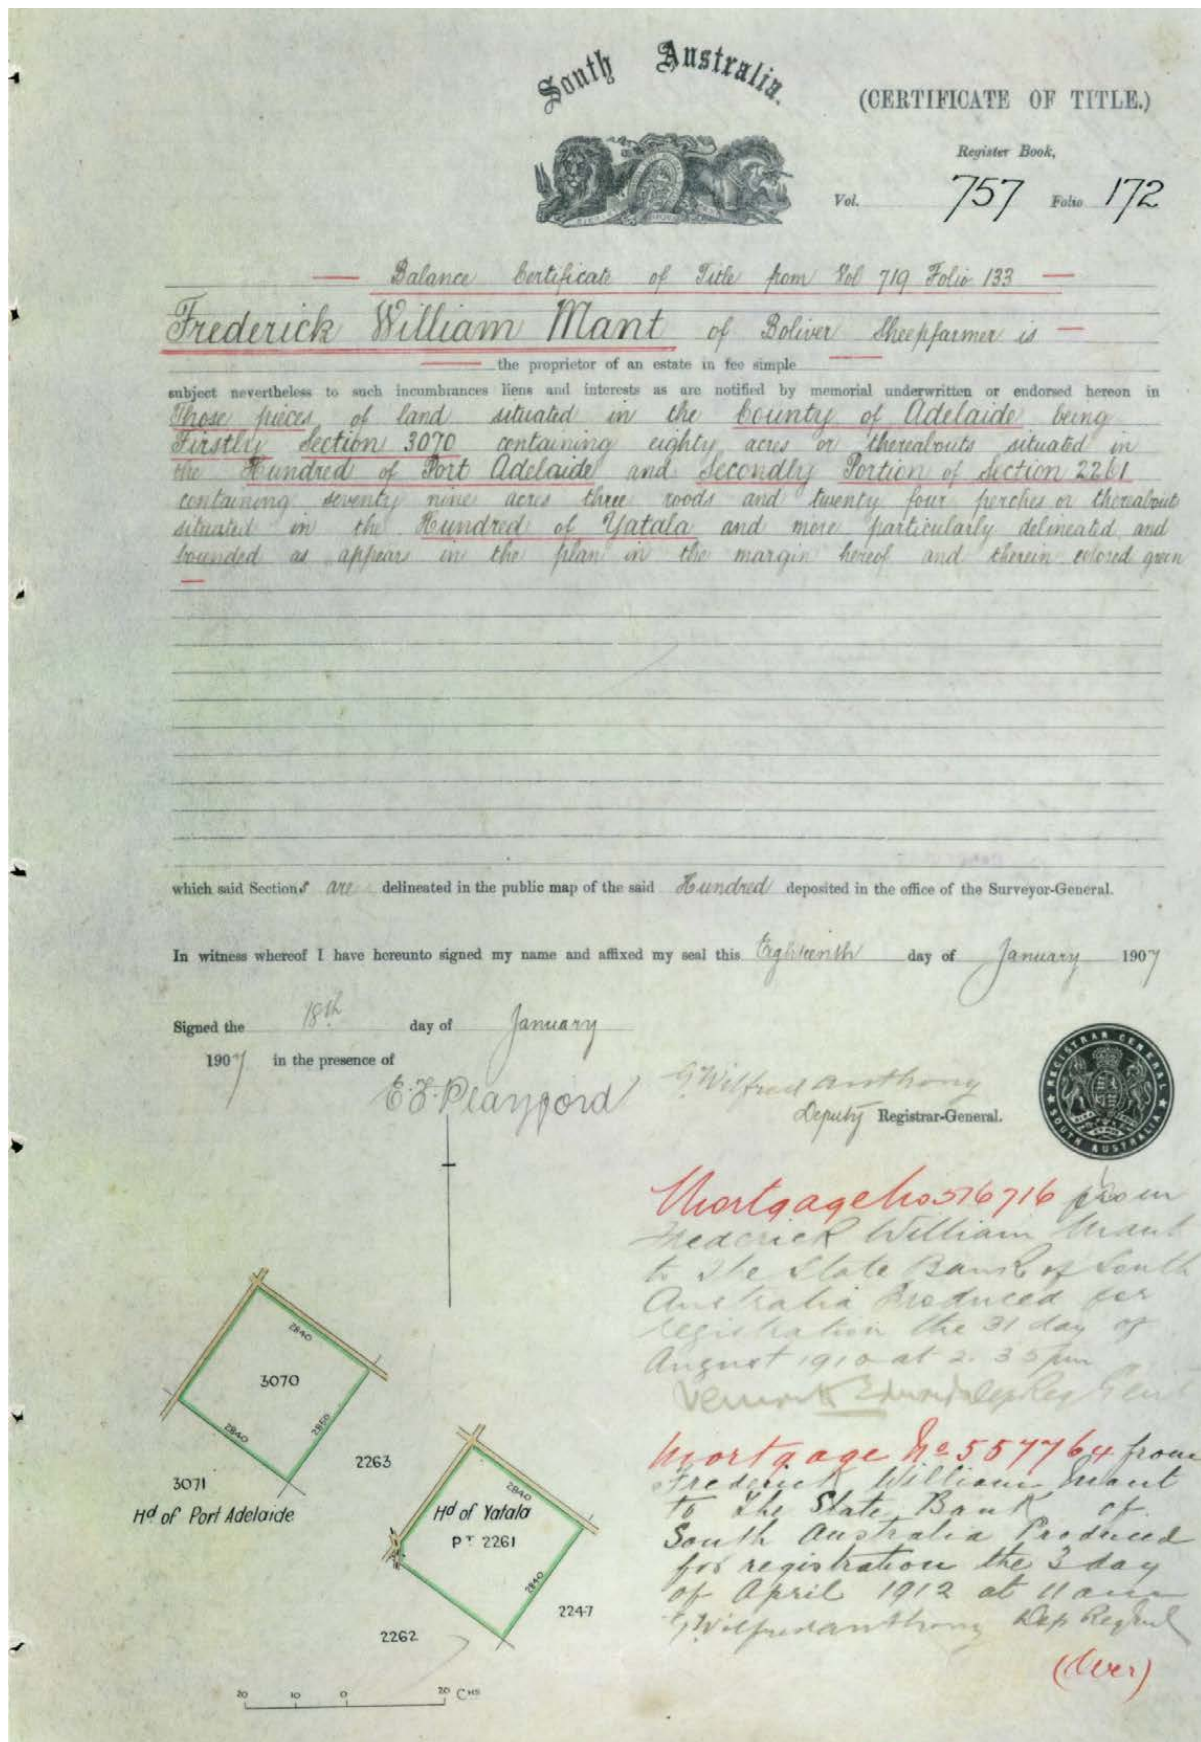 South Australia.
(CERTIFICATE OF TITLE.)
Register Book,
Vol. 757 Folio 172
Balance Certificate of Title from Vol 719 Folio 133
Frederick William Mant of Boliver Sheepfarmer is
the proprietor of an estate in fee simple
subject nevertheless to such incumbrances liens and interests as are notified by memorial underwritten or endorsed hereon in
Those pieces of land situated in the County of Adelaide being
Firstly Section 3070 containing eighty acres or thereabouts situated in
the Hundred of Port Adelaide and Secondly Portion of Section 2261
containing seventy nine acres three roods and twenty four perches or thereabouts
situated in the Hundred of Yatala and more particularly delineated and
bounded as appears in the plan in the margin hereof and therein colored green
which said Sections are delineated in the public map of the said Hundred deposited in the office of the Surveyor-General.
In witness whereof I have hereunto signed my name and affixed my seal this Eighteenth day of January 1907
Signed the 18th day of January
1907 in the presence of
E.F. Playford
G Wilfred Anthony
Deputy Registrar-General.
REGISTRAR GENERAL
SOUTH AUSTRALIA
Mortgage No 516716 from
Frederick William Mant
to The State Bank of South
Australia Produced for
registration the 31 day of
August 1910 at 2.35 pm
Dep Reg Genl
Mortgage No 557764 from
Frederick William Mant
to The State Bank of
South Australia Produced
for registration the 3 day
of April 1912 at 11 am
G Wilfred Anthony Dep Reg Genl
(Over)
2840
3070
2840
2850
3071
2263
Hd of Port Adelaide
2840
Hd of Yatala
PT 2261
2840
2247
2262
20 10 0 20 CHS